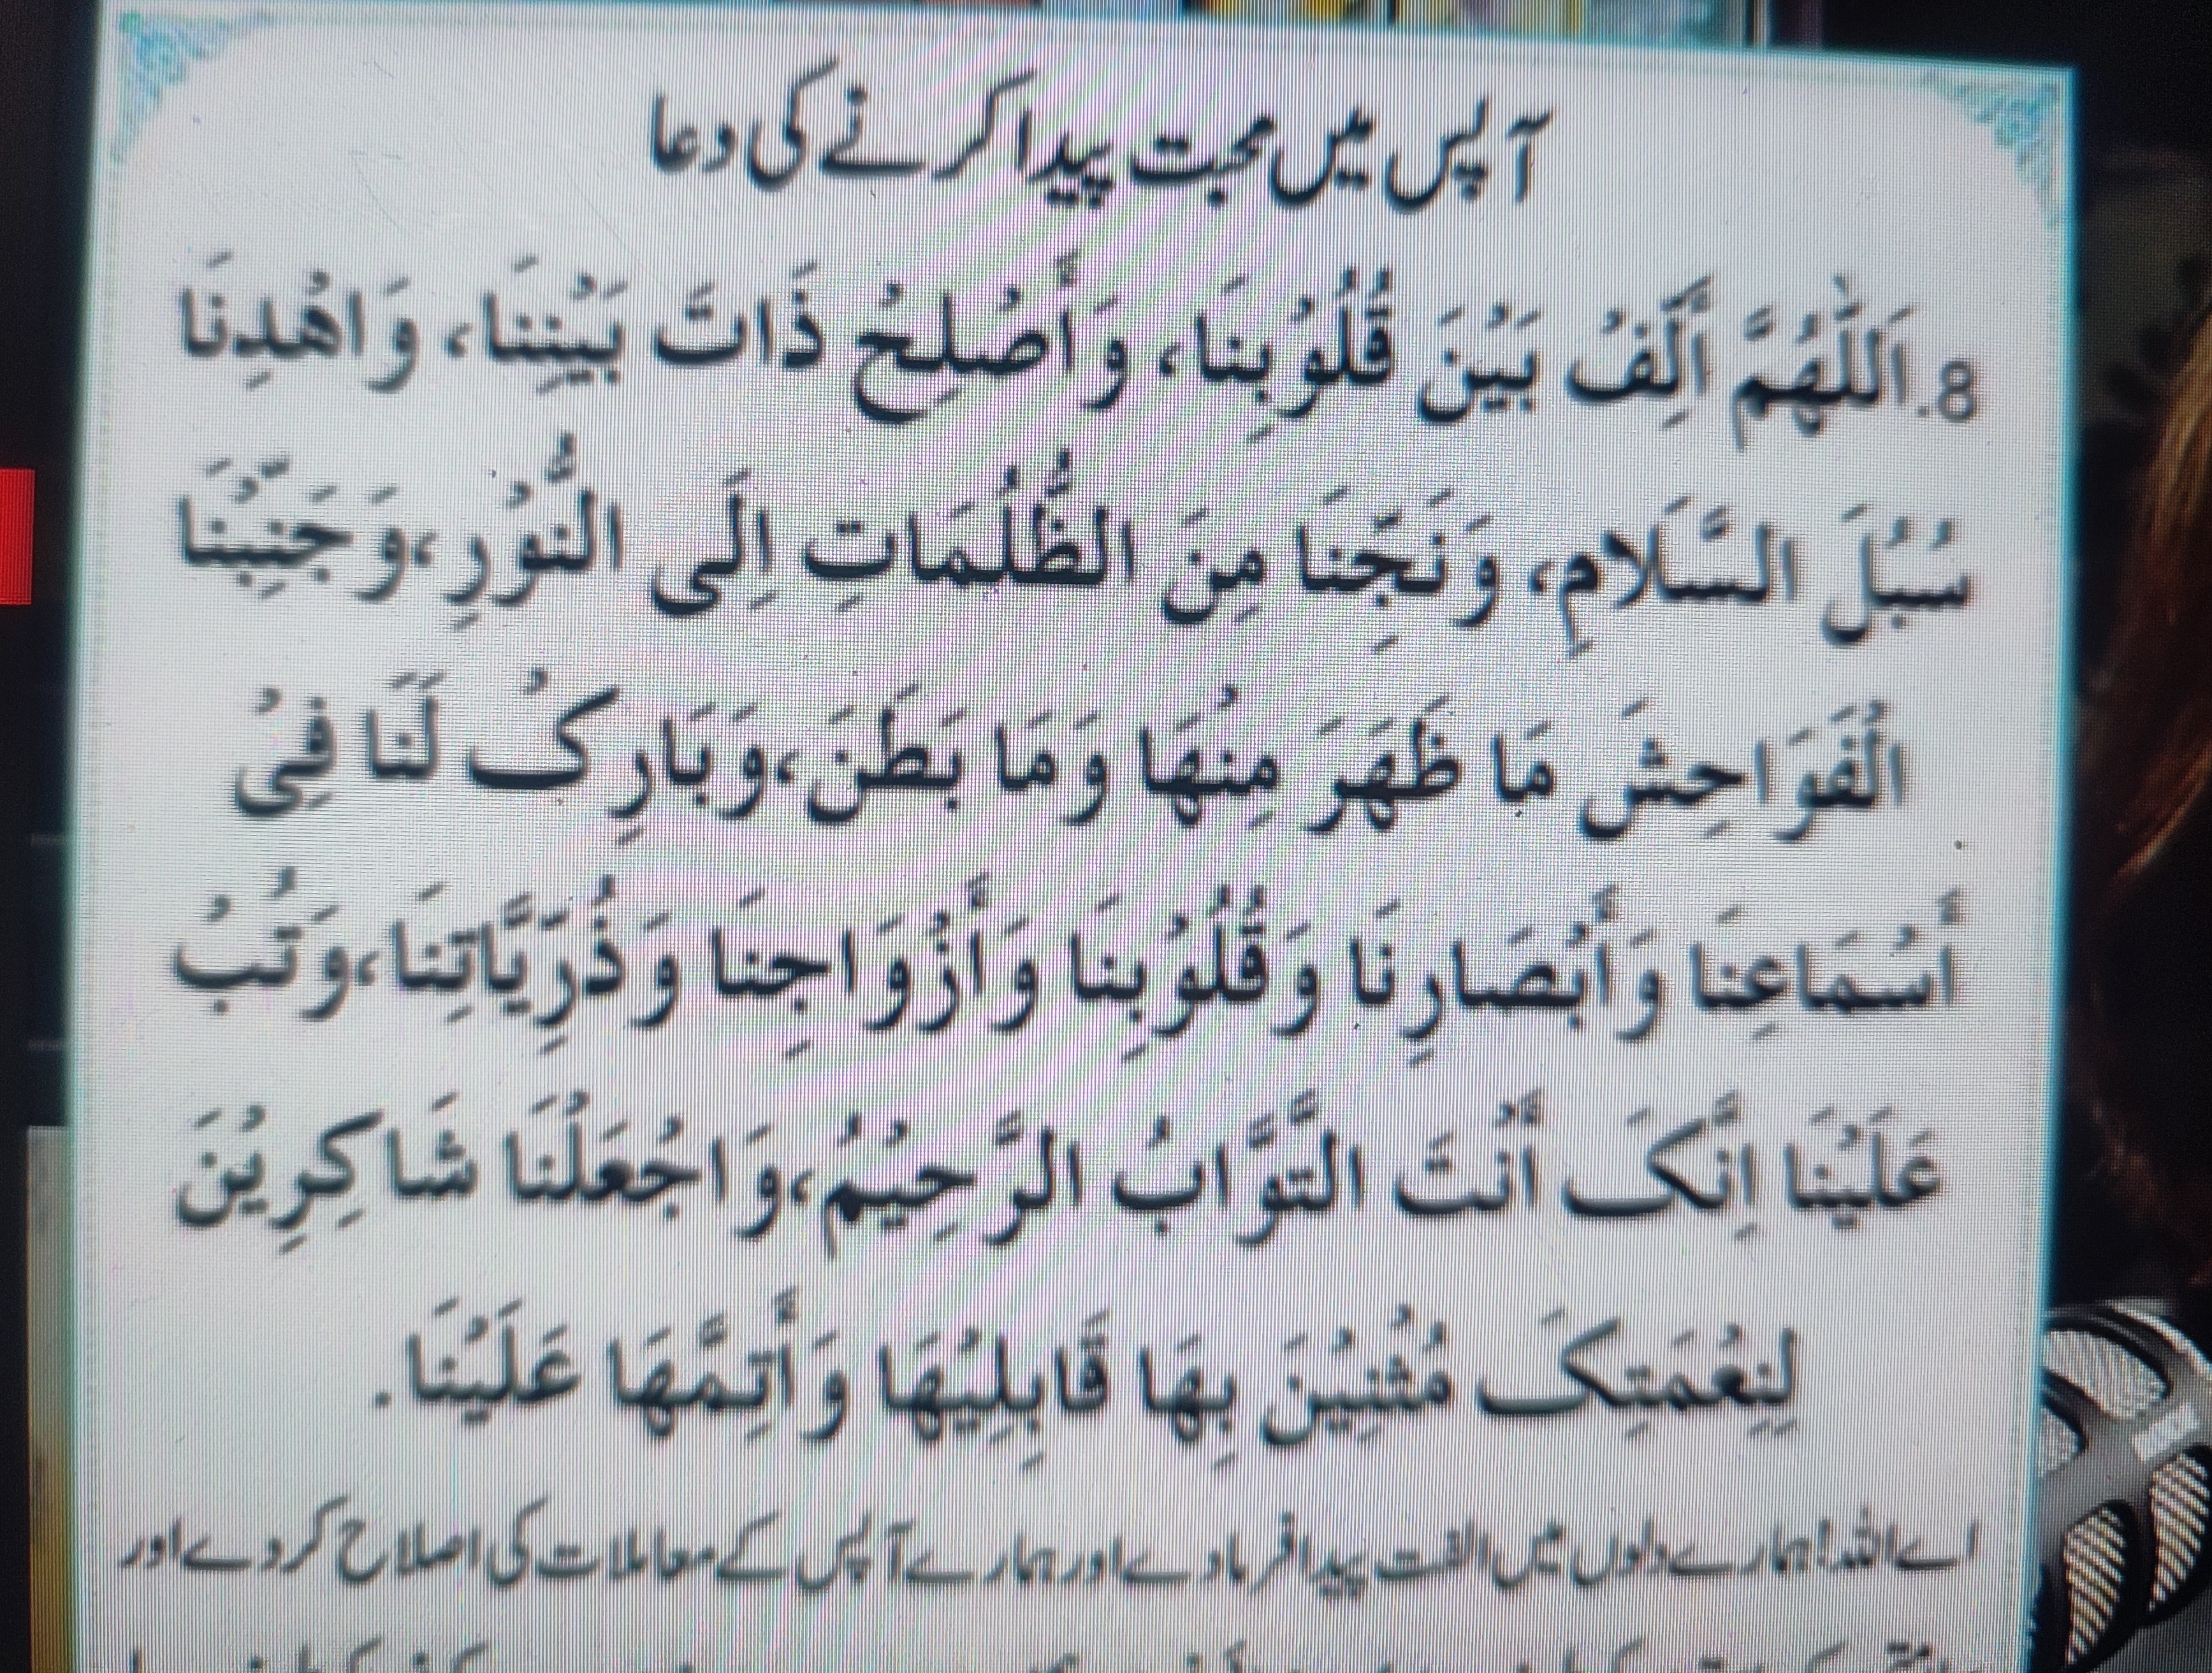 آپس میں محبت پیدا کرنے کی دعا
8. اَللّٰهُمَّ أَلِّفْ بَيْنَ قُلُوْبِنَا، وَأَصْلِحْ ذَاتَ بَيْنِنَا، وَاهْدِنَا
سُبُلَ السَّلَامِ، وَنَجِّنَا مِنَ الظُّلُمَاتِ اِلَى النُّوْرِ،وَجَنِّبْنَا
الْفَوَاحِشَ مَا ظَهَرَ مِنْهَا وَمَا بَطَنَ،وَبَارِکْ لَنَا فِیْ
أَسْمَاعِنَا وَأَبْصَارِنَا وَقُلُوْبِنَا وَأَزْوَاجِنَا وَذُرِّيَّاتِنَا،وَتُبْ
عَلَيْنَا اِنَّکَ أَنْتَ التَّوَّابُ الرَّحِيْمُ،وَاجْعَلْنَا شَاكِرِيْنَ
لِنِعْمَتِکَ مُثْنِيْنَ بِهَا قَابِلِيْهَا وَأَتِمَّهَا عَلَيْنَا.
اے اللہ! ہمارے دلوں میں الفت پیدا فرما دے اور ہمارے آپس کے معاملات کی اصلاح کر دے اور